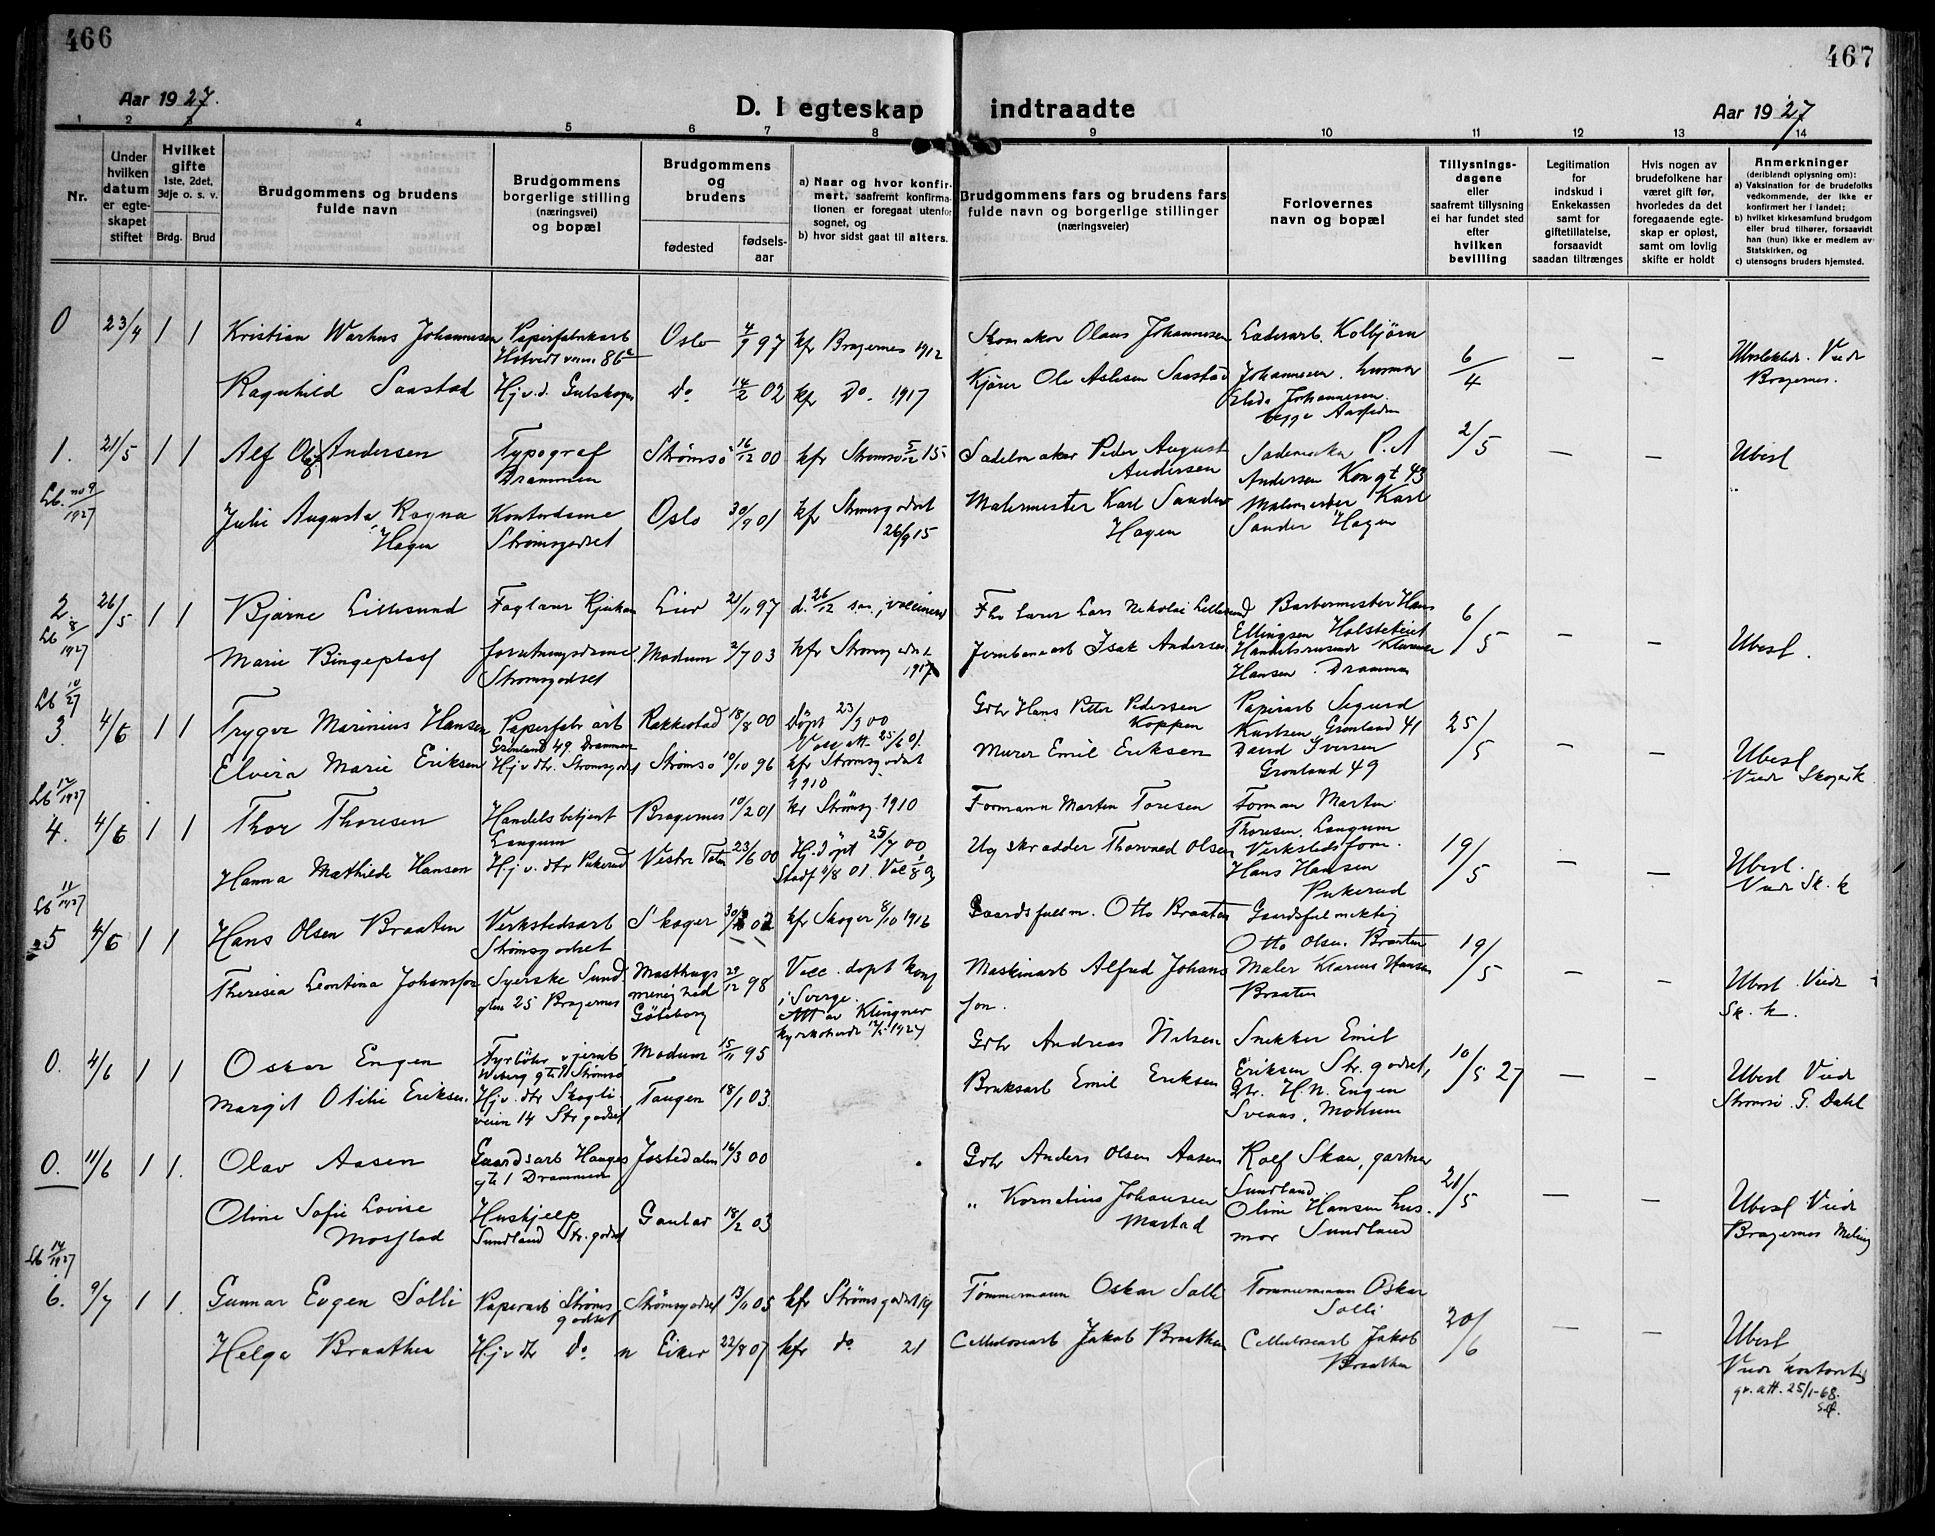 466
467
Aar 1927.
D. I egteskap indtraadte
Aar 1927
1 2 3 4 5 6 7 8 9 10 11 12 13 14
Nr.
Under hvilken datum er egteskapet stiftet
Hvilket gifte
1ste, 2det, 3dje o. s. v.
Brdg. Brud
Brudgommens og brudens fulde navn
Brudgommens borgerlige stilling (næringsvei) og bopæl
Brudgommens og brudens
fødested
fødselsaar
a) Naar og hvor konfirmert, saafremt konfirmationen er foregaat utenfor sognet, og
b) hvor sidst gaat til alters.
Brudgommens fars og brudens fars fulde navn og borgerlige stillinger (næringsveier)
Forlovernes navn og bopæl
Tillysningsdagene eller saafremt tillysning ei har fundet sted efter hvilken bevilling
Legitimation for indskud i Enkekassen samt for giftetillatelse, forsaavidt saadan tiltrænges
Hvis nogen av brudefolkene har været gift før, hvorledes da det foregaaende egteskap er opløst, samt om lovlig skifte er holdt
Anmerkninger (deriblandt oplysning om):
a) Vaksination for de brudefolks vedkommende, der ikke er konfirmert her i landet;
b) hvilket kirkesamfund brudgom eller brud tilhører, forsaavidt han (hun) ikke er medlem av Statskirken, og
c) utensogns bruders hjemsted.
0 23/4 1 1 Kristian Warhus Johannesen Papirfabrikarb Oslo 4/9 97 kfr Bragernes 1912 Skomaker Olaus Johannesen Læderarb. Kolbjørn
Hotvedt veien 86
Johannesen. husmor
6/4 — —
Viede Bragernes.
Ragnhild Saastad Hj. v. d. Gulskogen Do 14/2 02 kfr Do. 1917 Kjører Ole Aslesen Saastad
Elida Johannesen.
begge Aassiden
1. 21/5 1 1 Alf Andersen Typograf Drammen Strømsø 16/12 00 kfr Strømsø 5/12 15 Sadelmaker Peder August Andersen Sadelmaker P. A Andersen Kongt 43 2/5 — — Ubesl
Lb. no 9/1927
Julie Augusta Ragna Hagen Kontordame Strømsgodset Oslo 30/9 01 kfr Strømsgodset 26/9 15 Malermester Karl Sander Hagen Malermester Karl Sander Hagen
2. 26/5 1 1 Bjarne Lillesund Faglærer Rjukan Lier 21/11 97 d. 26/12 s.a., vaccinert Lars Nikolai Lillesund Barbermester Hans Ellingsen Holstebreit 6/5 — — Ubesl.
Lb 8/1927
Marie Bingeplass forretningsdame Strømsgodset Modum 2/7 03 kfr Strømsgodset 1917 Jernbanearb Isak Andersen Handelsreisende Hansen. Drammen
Lb 10/27
3. 4/6 1 1 Trygve Marinius Hansen Papirfabr arb Grønland 49. Drammen Rakkestad 18/8 00 Døpt 23/9 00 Vacc att 25/6 01. Gbr Hans Petter Pedersen Koppen Papirarb Sigurd Karlsen Grønland 41 25/5 — — Ubesl Viede Skoger k.
Elvira Marie Eriksen Hj v. dtr. Strømsgodset Strømsø 10/10 96 kfr Strømsgodset 1910 Murer Emil Eriksen David Iversen Grønland 49
Lb 12/1927
4. 4/6 1 1 Thor Thoresen Handelsbetjent Langum Bragernes 10/2 01 kr Strømsg. 1910 Formann Morten Toresen Forman Morten Thoresen, Langum 19/5 — — Ubesl. Viede Sk. k
Hanna Mathilde Hansen Hj v. dtr Pukerud Vestre Toten 23/6 00 Hj. døpt 25/7 00 Ug skrædder Thorvald Olsen Verkstedsform. Hans Hansen Pukerud
Lb 11/1927
5 4/6 1 1 Hans Olsen Braaten Verkstedsarb Strømsgodset Skoger kfr Skoger 8/10 1916 Gaardsfullm. Otto Braaten Gaardsfulmektig Otto Olsen Braaten 19/5 — — Ubesl Viede Sk. k.
Theresia Leontina Johansson Syerske Sundgten 25 Bragernes Masthugs menighed Göteborg 29/12 98 Vacc. døpt konf i Sverge. Att av Klingner kyrkoherde 1927 Maskinarb Alfred Johansson Maler Klarius Hansen Braaten
0. 4/6 1 1 Oskar Engen Fyrbøter v jernb Weberg gt. 11 Strømsø Modum 15/11 95 Gbr Andreas Nilsen Snekker Emil Eriksen Str. godset, 10/5 27 — — Ubesl Viede Strømsø G. Dahl
Margit Otilie Eriksen. Hj v. dtr Skogliveien 14 Str godset Tangen 18/1 03 Bruksarb Emil Eriksen Gbr. H. N. Engen Sveaas, Modum
0. 11/6 1 1. Olav Aasen Gaardsarb Hauges gt 1 Drammen Jostedalen 16/3 00 Gbr Anders Olsen Aasen Rolf Skau, gartner Sundland 21/5 — — Ubesl Viede Bragernes
Oline Sofie Lovise Mosstad Hushjelp Sundland Str. godset Gaular 18/2 03 " Kornelius Johansen Mostad Oline Hansen husmor Sundland
Lb 14/1927
6. 9/7 1 1. Gunnar Evgen Solli Papirarb Strømsgodset Strømsgodset 13/11 05 kfr Strømsgodset 19 Tømmermann Oskar Solli Tømmermann Oskar Solli 20/6 — — Ubesl
Helga Braathen Hj v dtr Do n Eiker 22/8 07 kfr do 21 Cellulosearb Jakob Braathen Cellulosearb Jakob Braathen
gv. att. 25/1-68.